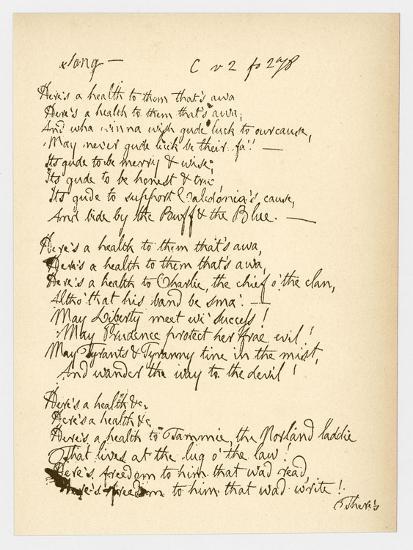 Song —
C v 2 fo 278
Here's a health to them that's awa
Here's a health to them that's awa,
And wha winna wish gude luck to our cause,
May never gude luck be their fa'! —
Its gude to be merry & wise,
Its gude to be honest & true,
Its gude to support Caledonia's cause,
And bide by the Buff & the Blue. —
Here's a health to them that's awa,
Here's a health to them that's awa,
Here's a health to Charlie, the chief o' the clan,
Altho' that his band be sma'. —
May Liberty meet wi' success!
May Prudence protect her frae evil!
May Tyrants & Tyranny tine in the mist,
And wander the way to the devil!
Here's a health &c.
Here's a health &c
Here's a health to Tammie, the Norland laddie
That lives at the lug o' the law!
Here's freedom to him that wad read,
Here's freedom to him that wad write!
There's